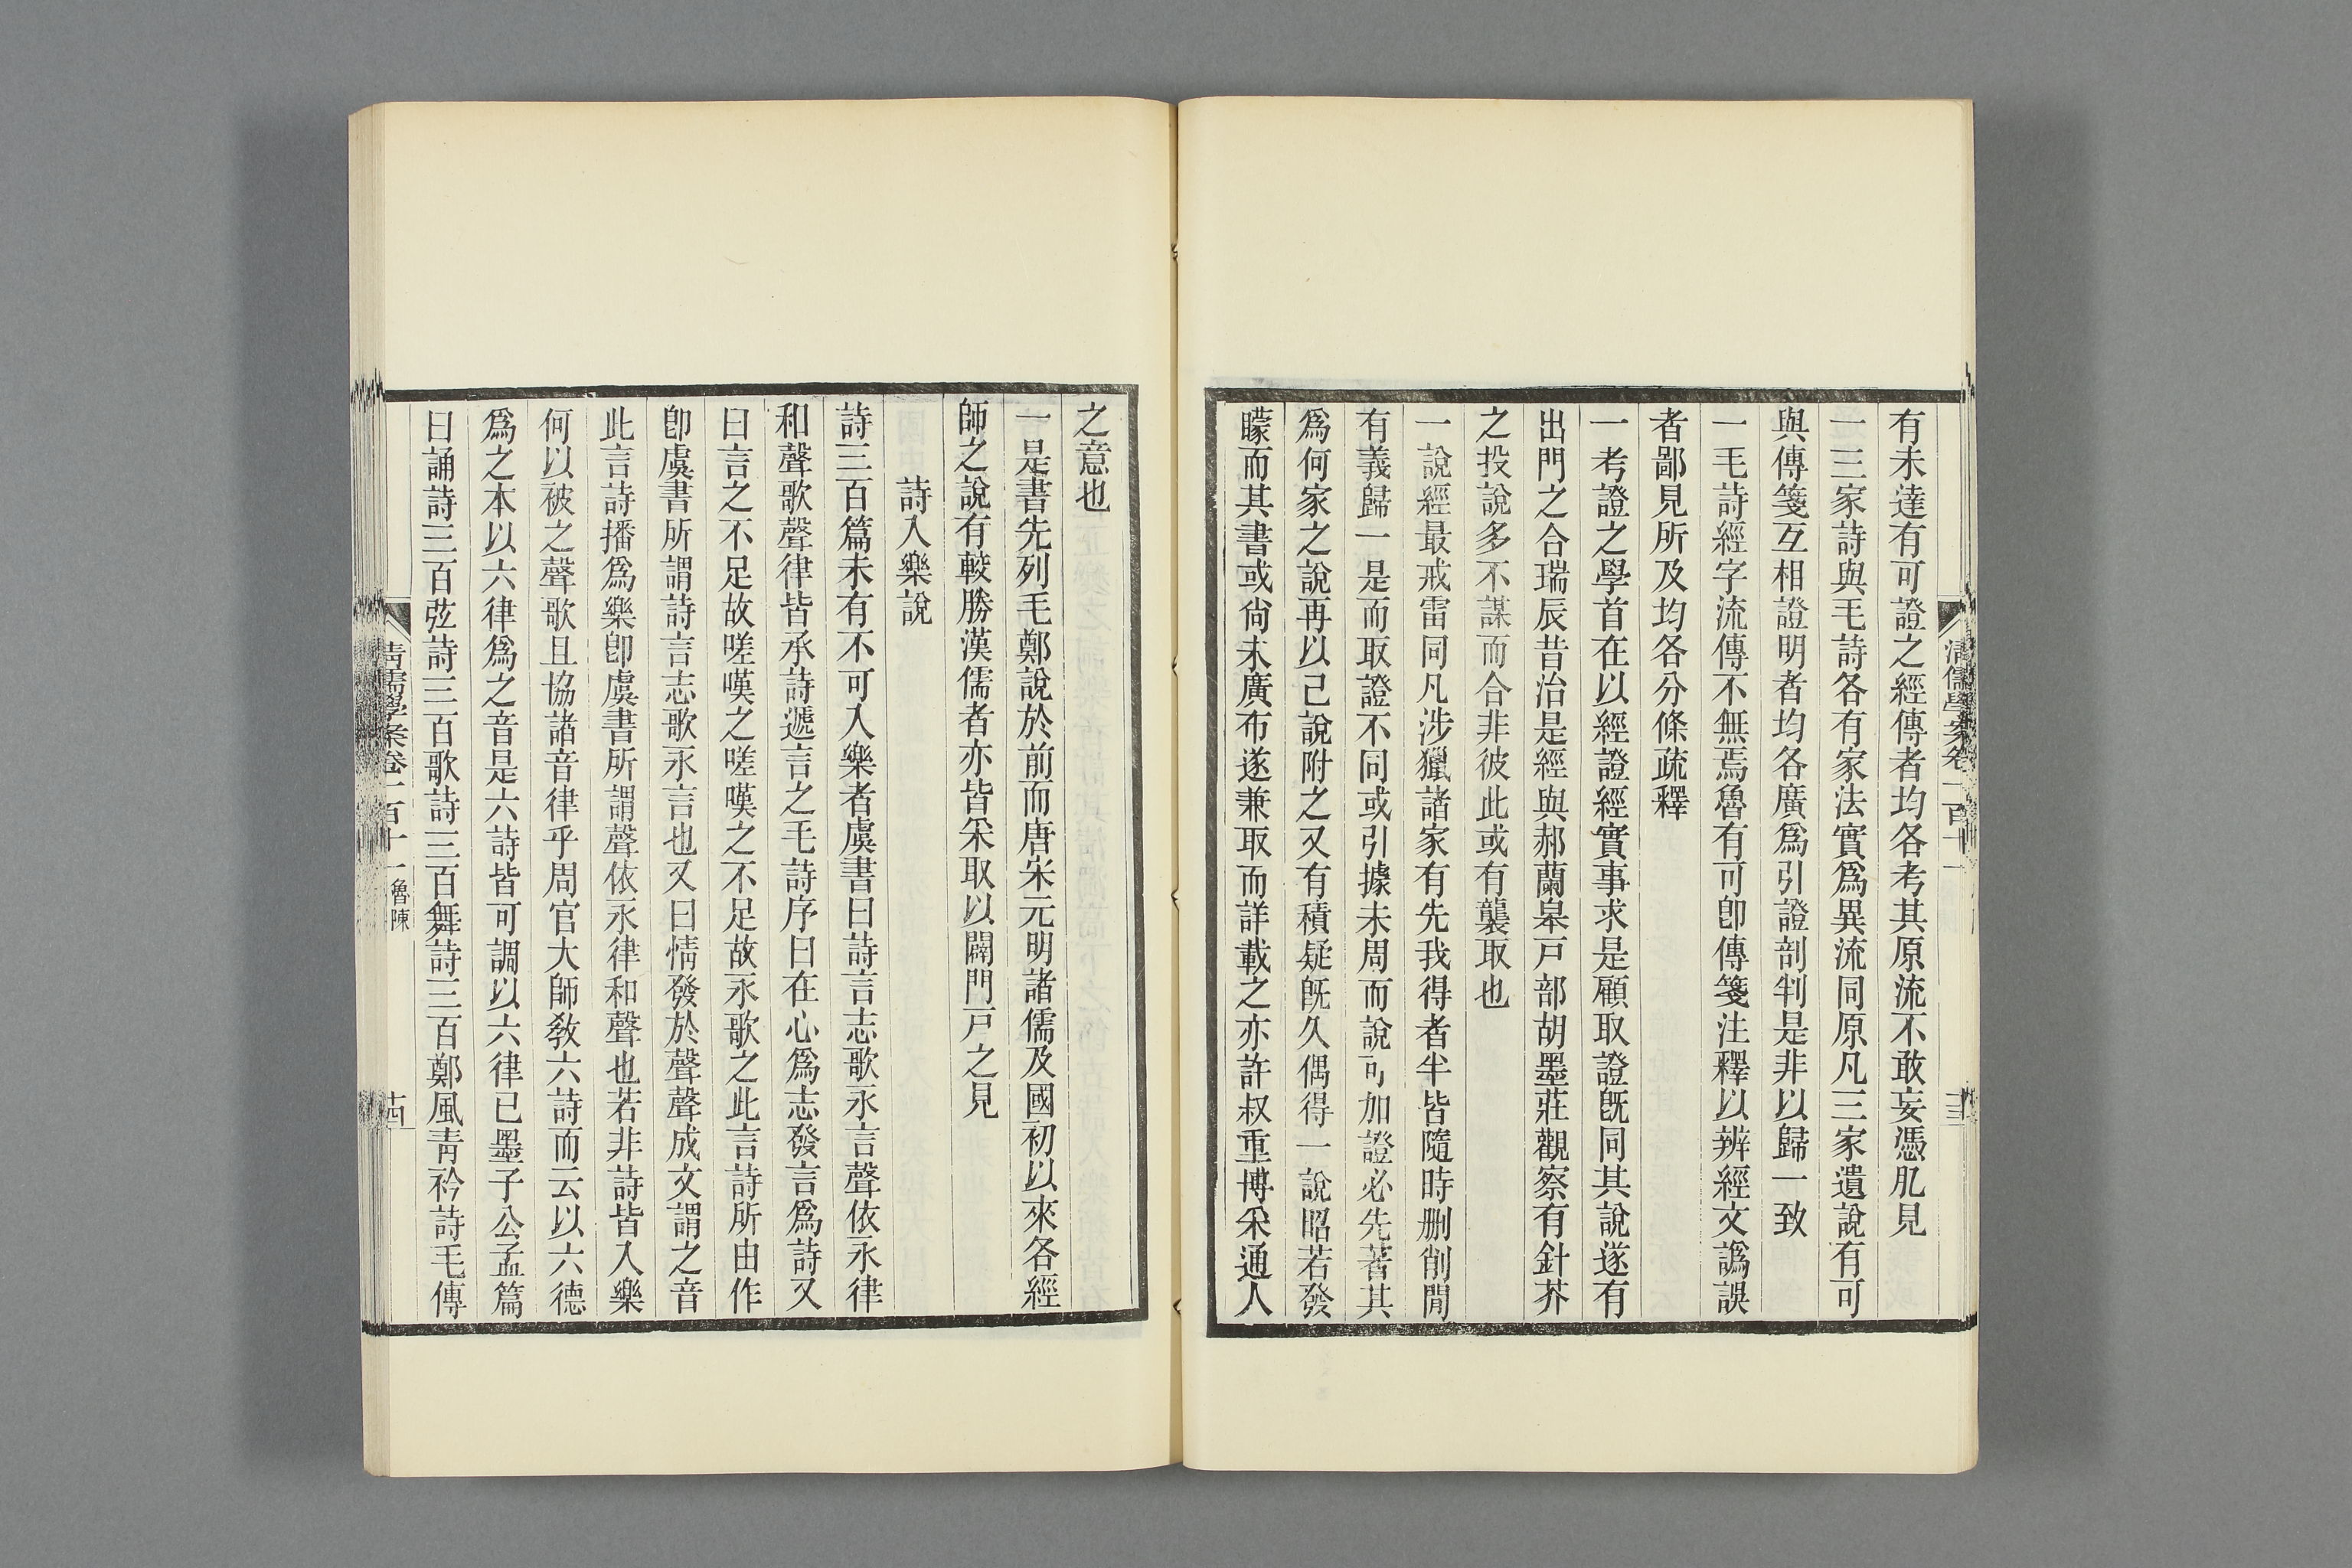 清儒學案卷一百十一
有未達有可證之經傳者均各考其原流不敢妄憑肊見
一三家詩與毛詩各有家法實爲異流同原凡三家遺說有可
與傳箋互相證明者均各廣爲引證剖判是非以歸一致
一毛詩經字流傳不無焉魯有可卽傳箋注釋以辨經文譌誤
者鄙見所及均各分條疏釋
一考證之學首在以經證經實事求是顧取證旣同其說遂有
出門之合瑞辰昔治是經與郝蘭皋戸部胡墨莊觀察有針芥
之投說多不謀而合非彼此或有襲取也
一說經最戒雷同凡涉獵諸家有先我得者半皆隨時删削閒
有義歸一是而取證不同或引據未周而說可加證必先著其
爲何家之說再以己說附之又有積疑旣久偶得一說昭若發
矇而其書或尙未廣布遂兼取而詳載之亦許叔重博采通人
之意也
一是書先列毛鄭說於前而唐宋元明諸儒及國初以來各經
師之說有較勝漢儒者亦皆采取以闢門戸之見
詩入樂說
詩三百篇未有不可入樂者虞書曰詩言志歌永言聲依永律
和聲歌聲律皆承詩遞言之毛詩序曰在心爲志發言爲詩又
曰言之不足故嗟嘆之嗟嘆之不足故永歌之此言詩所由作
卽虞書所謂詩言志歌永言也又曰情發於聲聲成文謂之音
此言詩播爲樂卽虞書所謂聲依永律和聲也若非詩皆入樂
何以被之聲歌且協諸音律乎周官大師敎六詩而云以六德
爲之本以六律爲之音是六詩皆可調以六律已墨子公孟篇
曰誦詩三百弦詩三百歌詩三百舞詩三百鄭風青衿詩毛傳
清儒學案卷一百十一 魯陳
十四